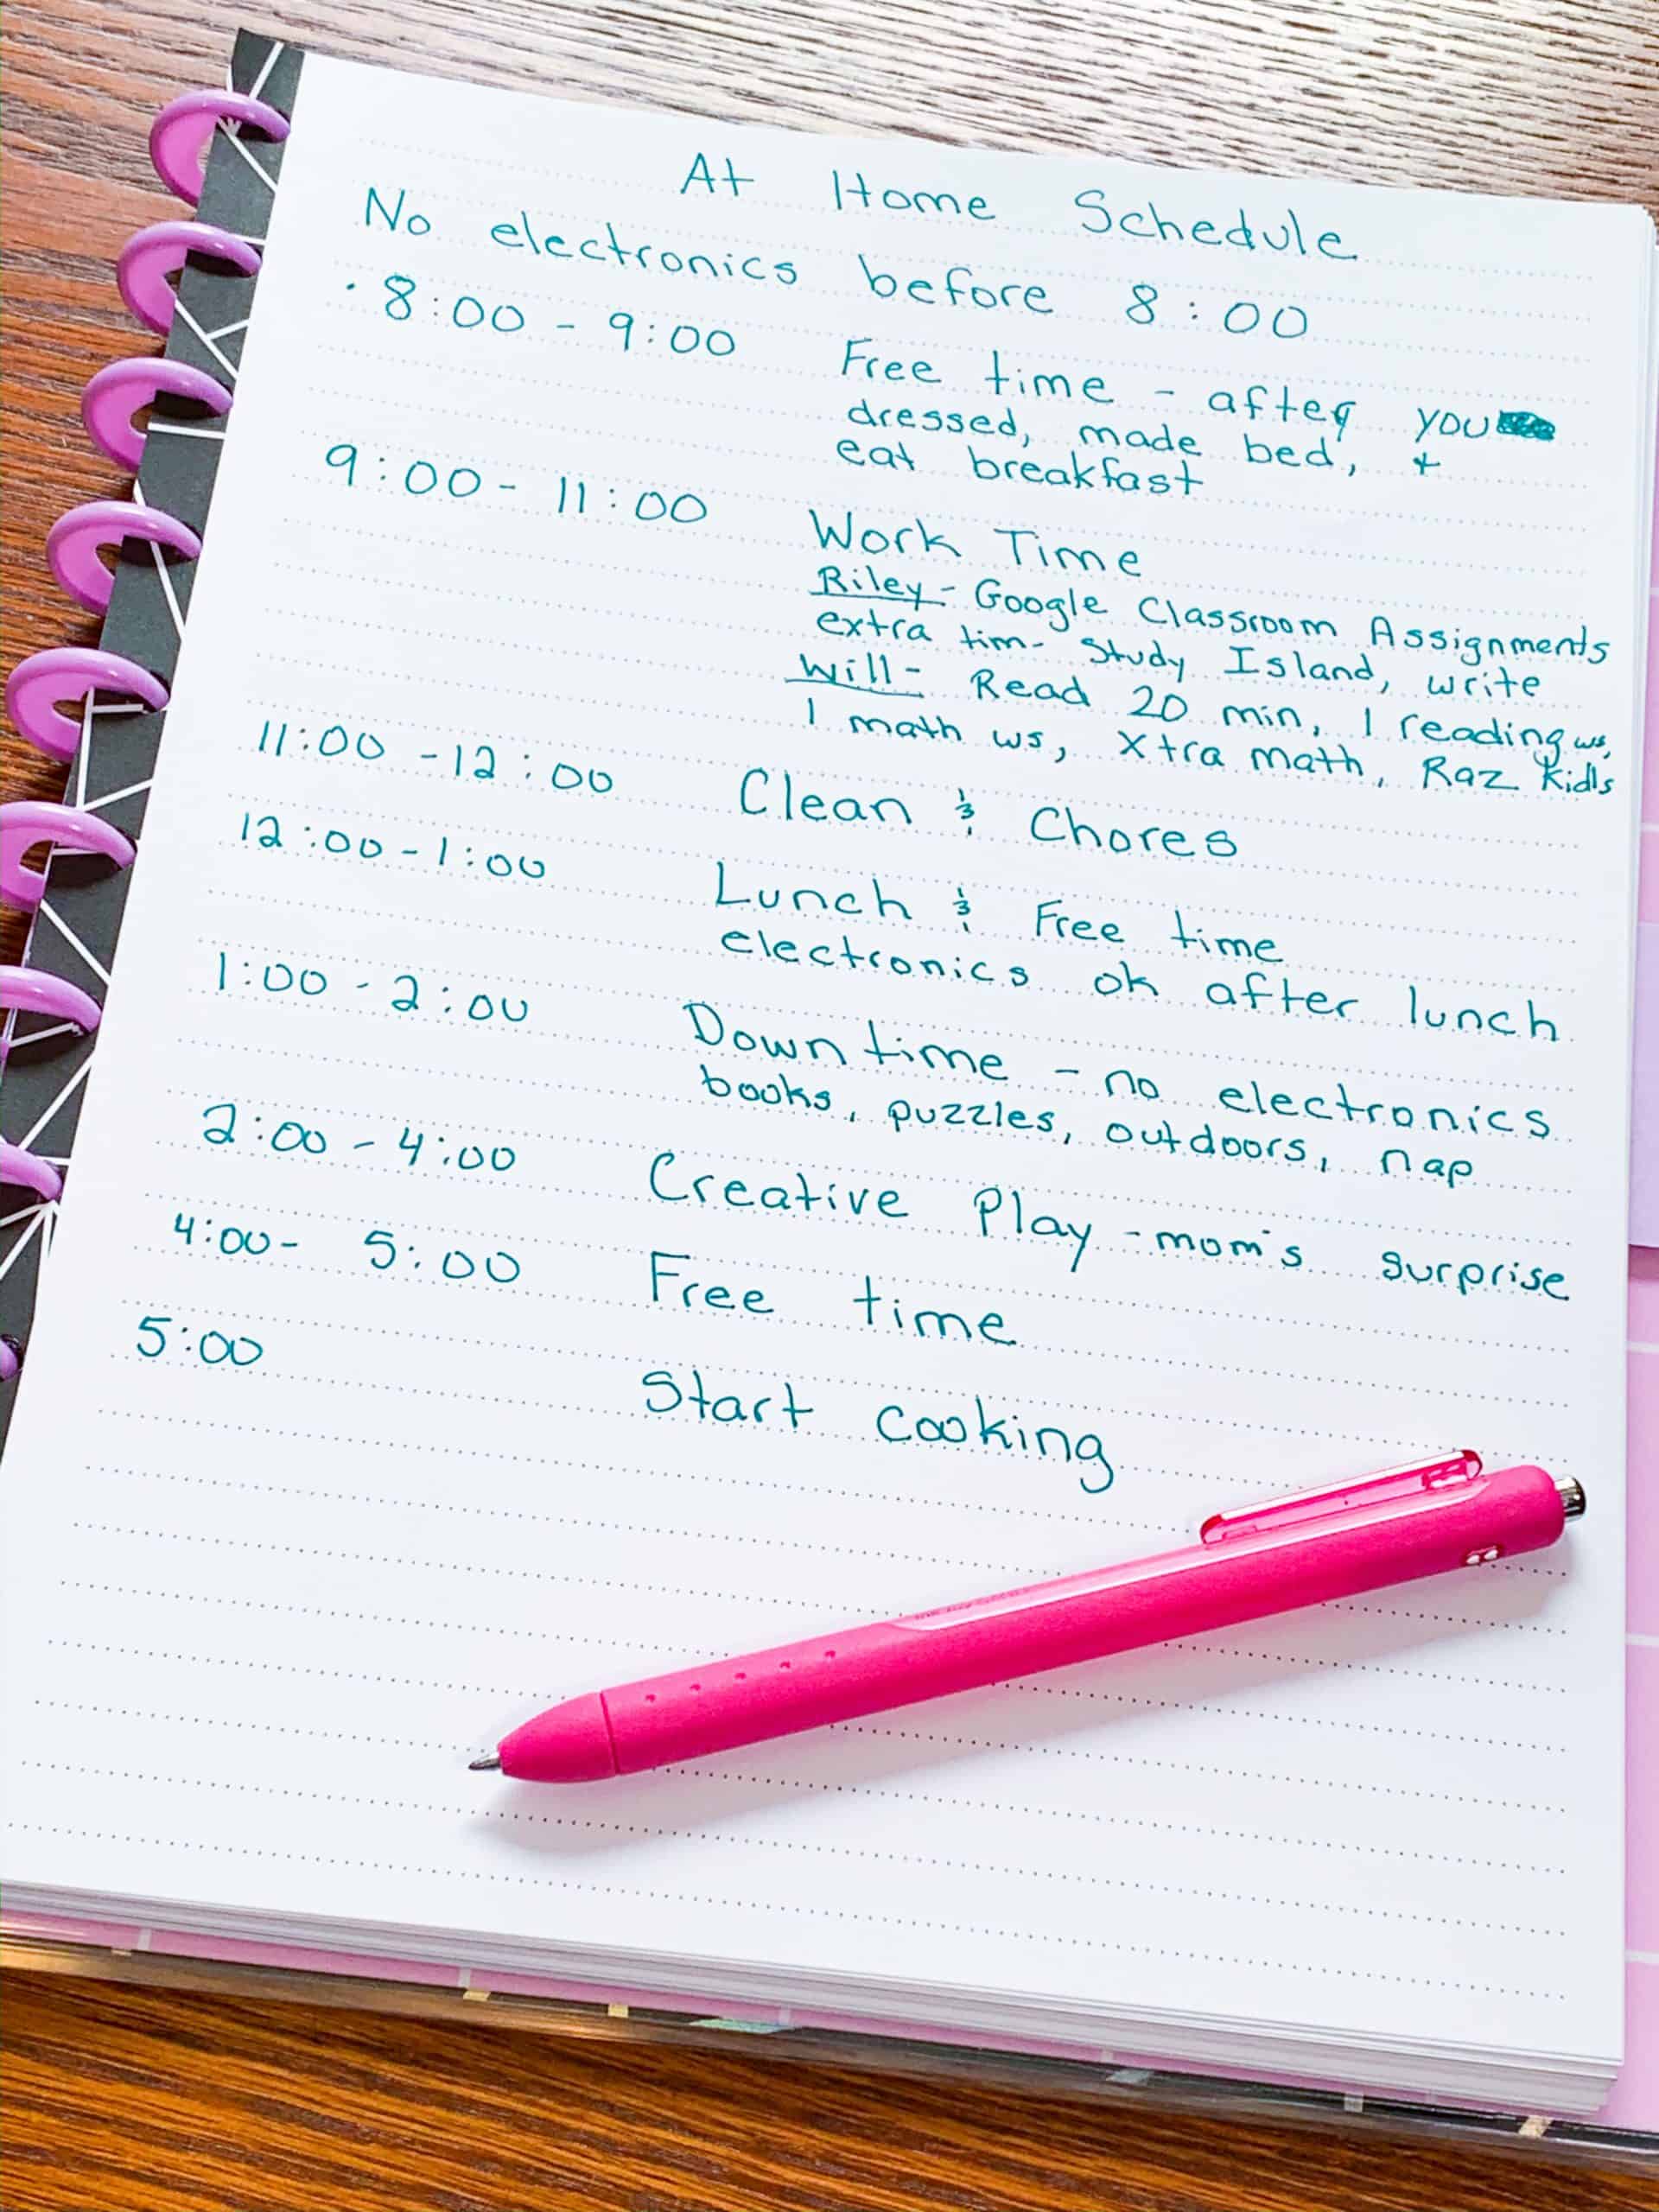 At Home Schedule
No electronics before 8:00
· 8:00 - 9:00 Free time - after you
dressed, made bed, +
eat breakfast
9:00 - 11:00 Work Time
Riley - Google Classroom Assignments
extra tim- Study Island, write
Will - Read 20 min, 1 reading ws,
1 math ws, Xtra math, Raz Kids
11:00 - 12:00 Clean & Chores
12:00 - 1:00 Lunch & Free time
electronics ok after lunch
1:00 - 2:00 Down time - no electronics
books, puzzles, outdoors, nap
2:00 - 4:00 Creative Play - mom's surprise
4:00 - 5:00 Free time
5:00 Start cooking